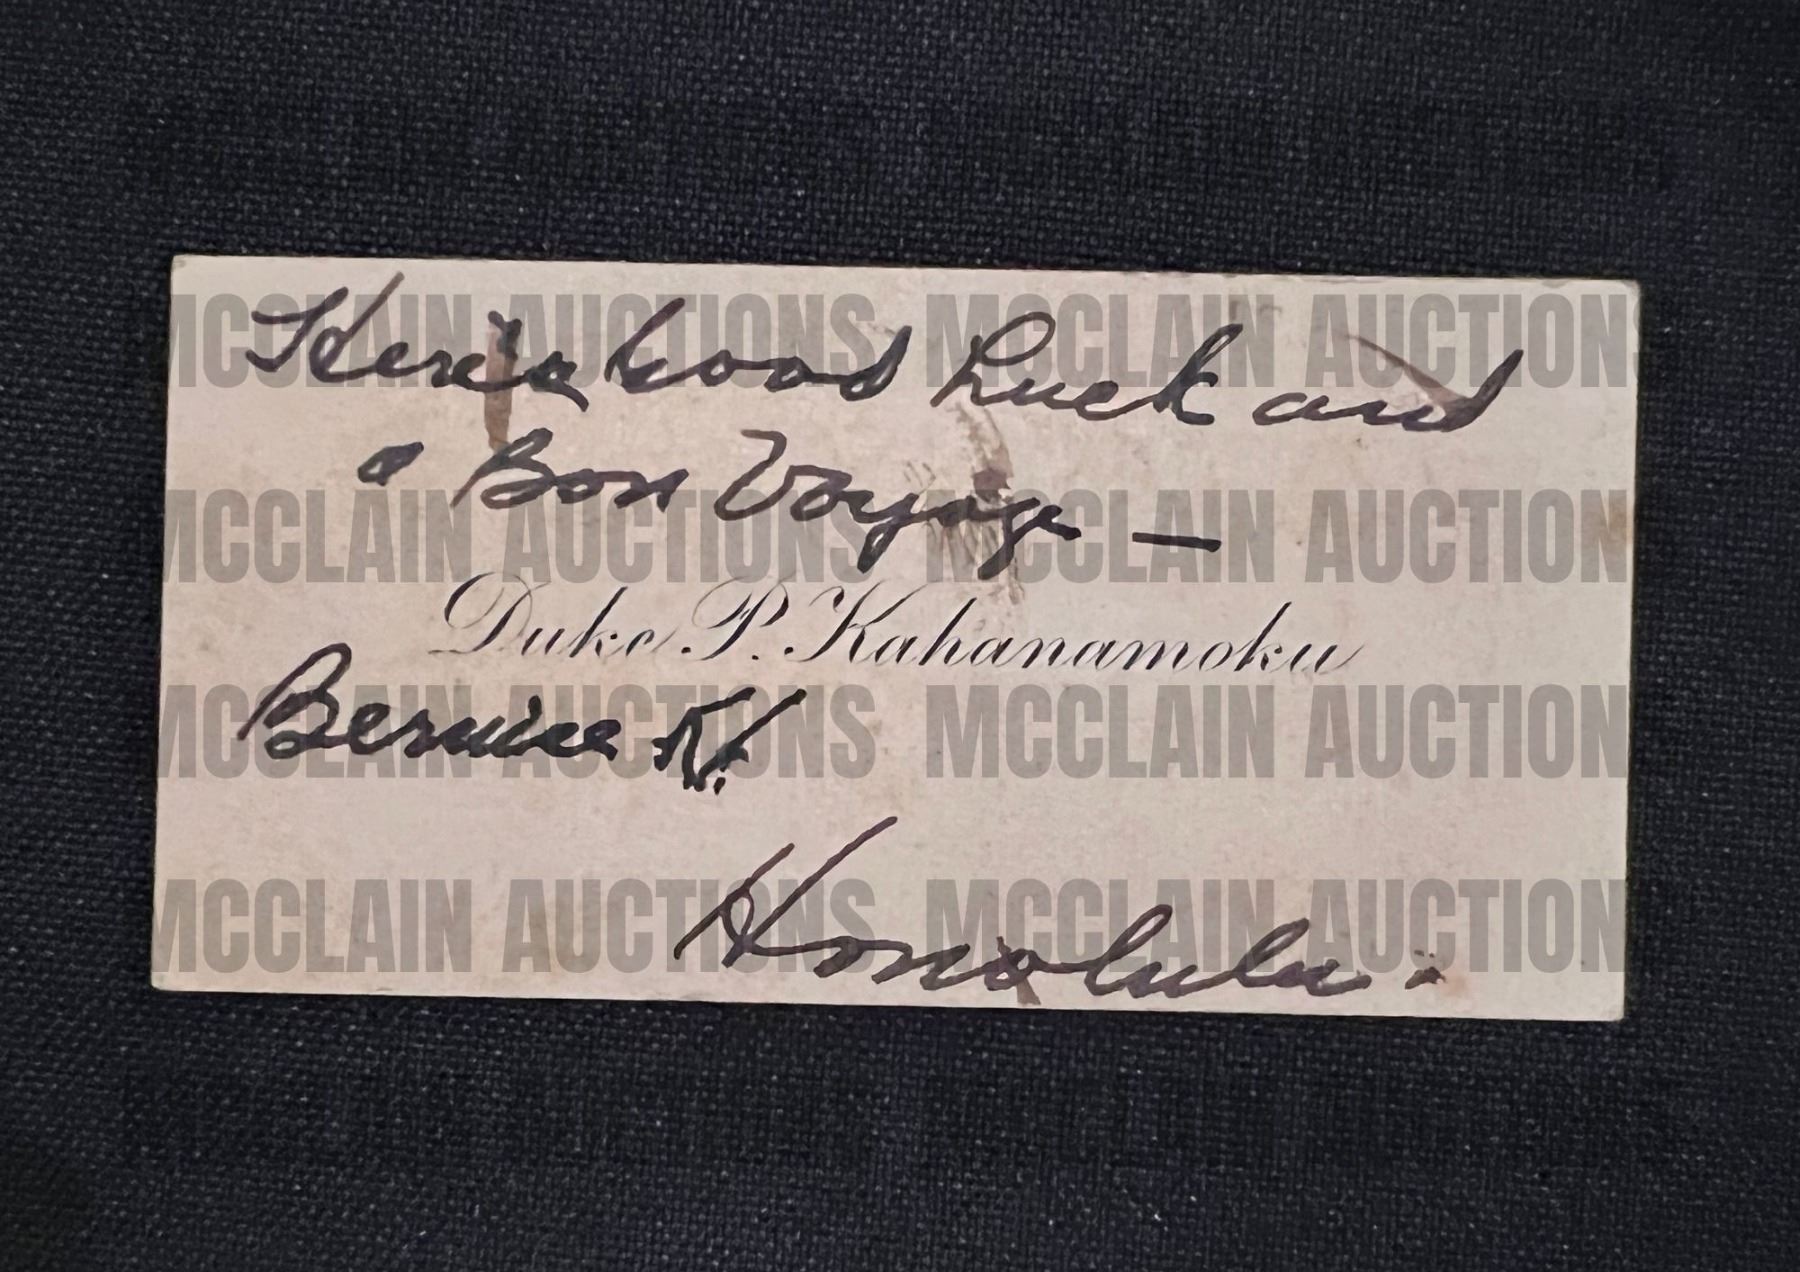 Here's Good Luck and
a Bon Voyage —
Duke P. Kahanamoku
Bernice K.
Honolulu.
MCCLAIN AUCTIONS MCCLAIN AUCTIONS
MCCLAIN AUCTIONS MCCLAIN AUCTION
MCCLAIN AUCTIONS MCCLAIN AUCTION
MCCLAIN AUCTIONS MCCLAIN AUCTION